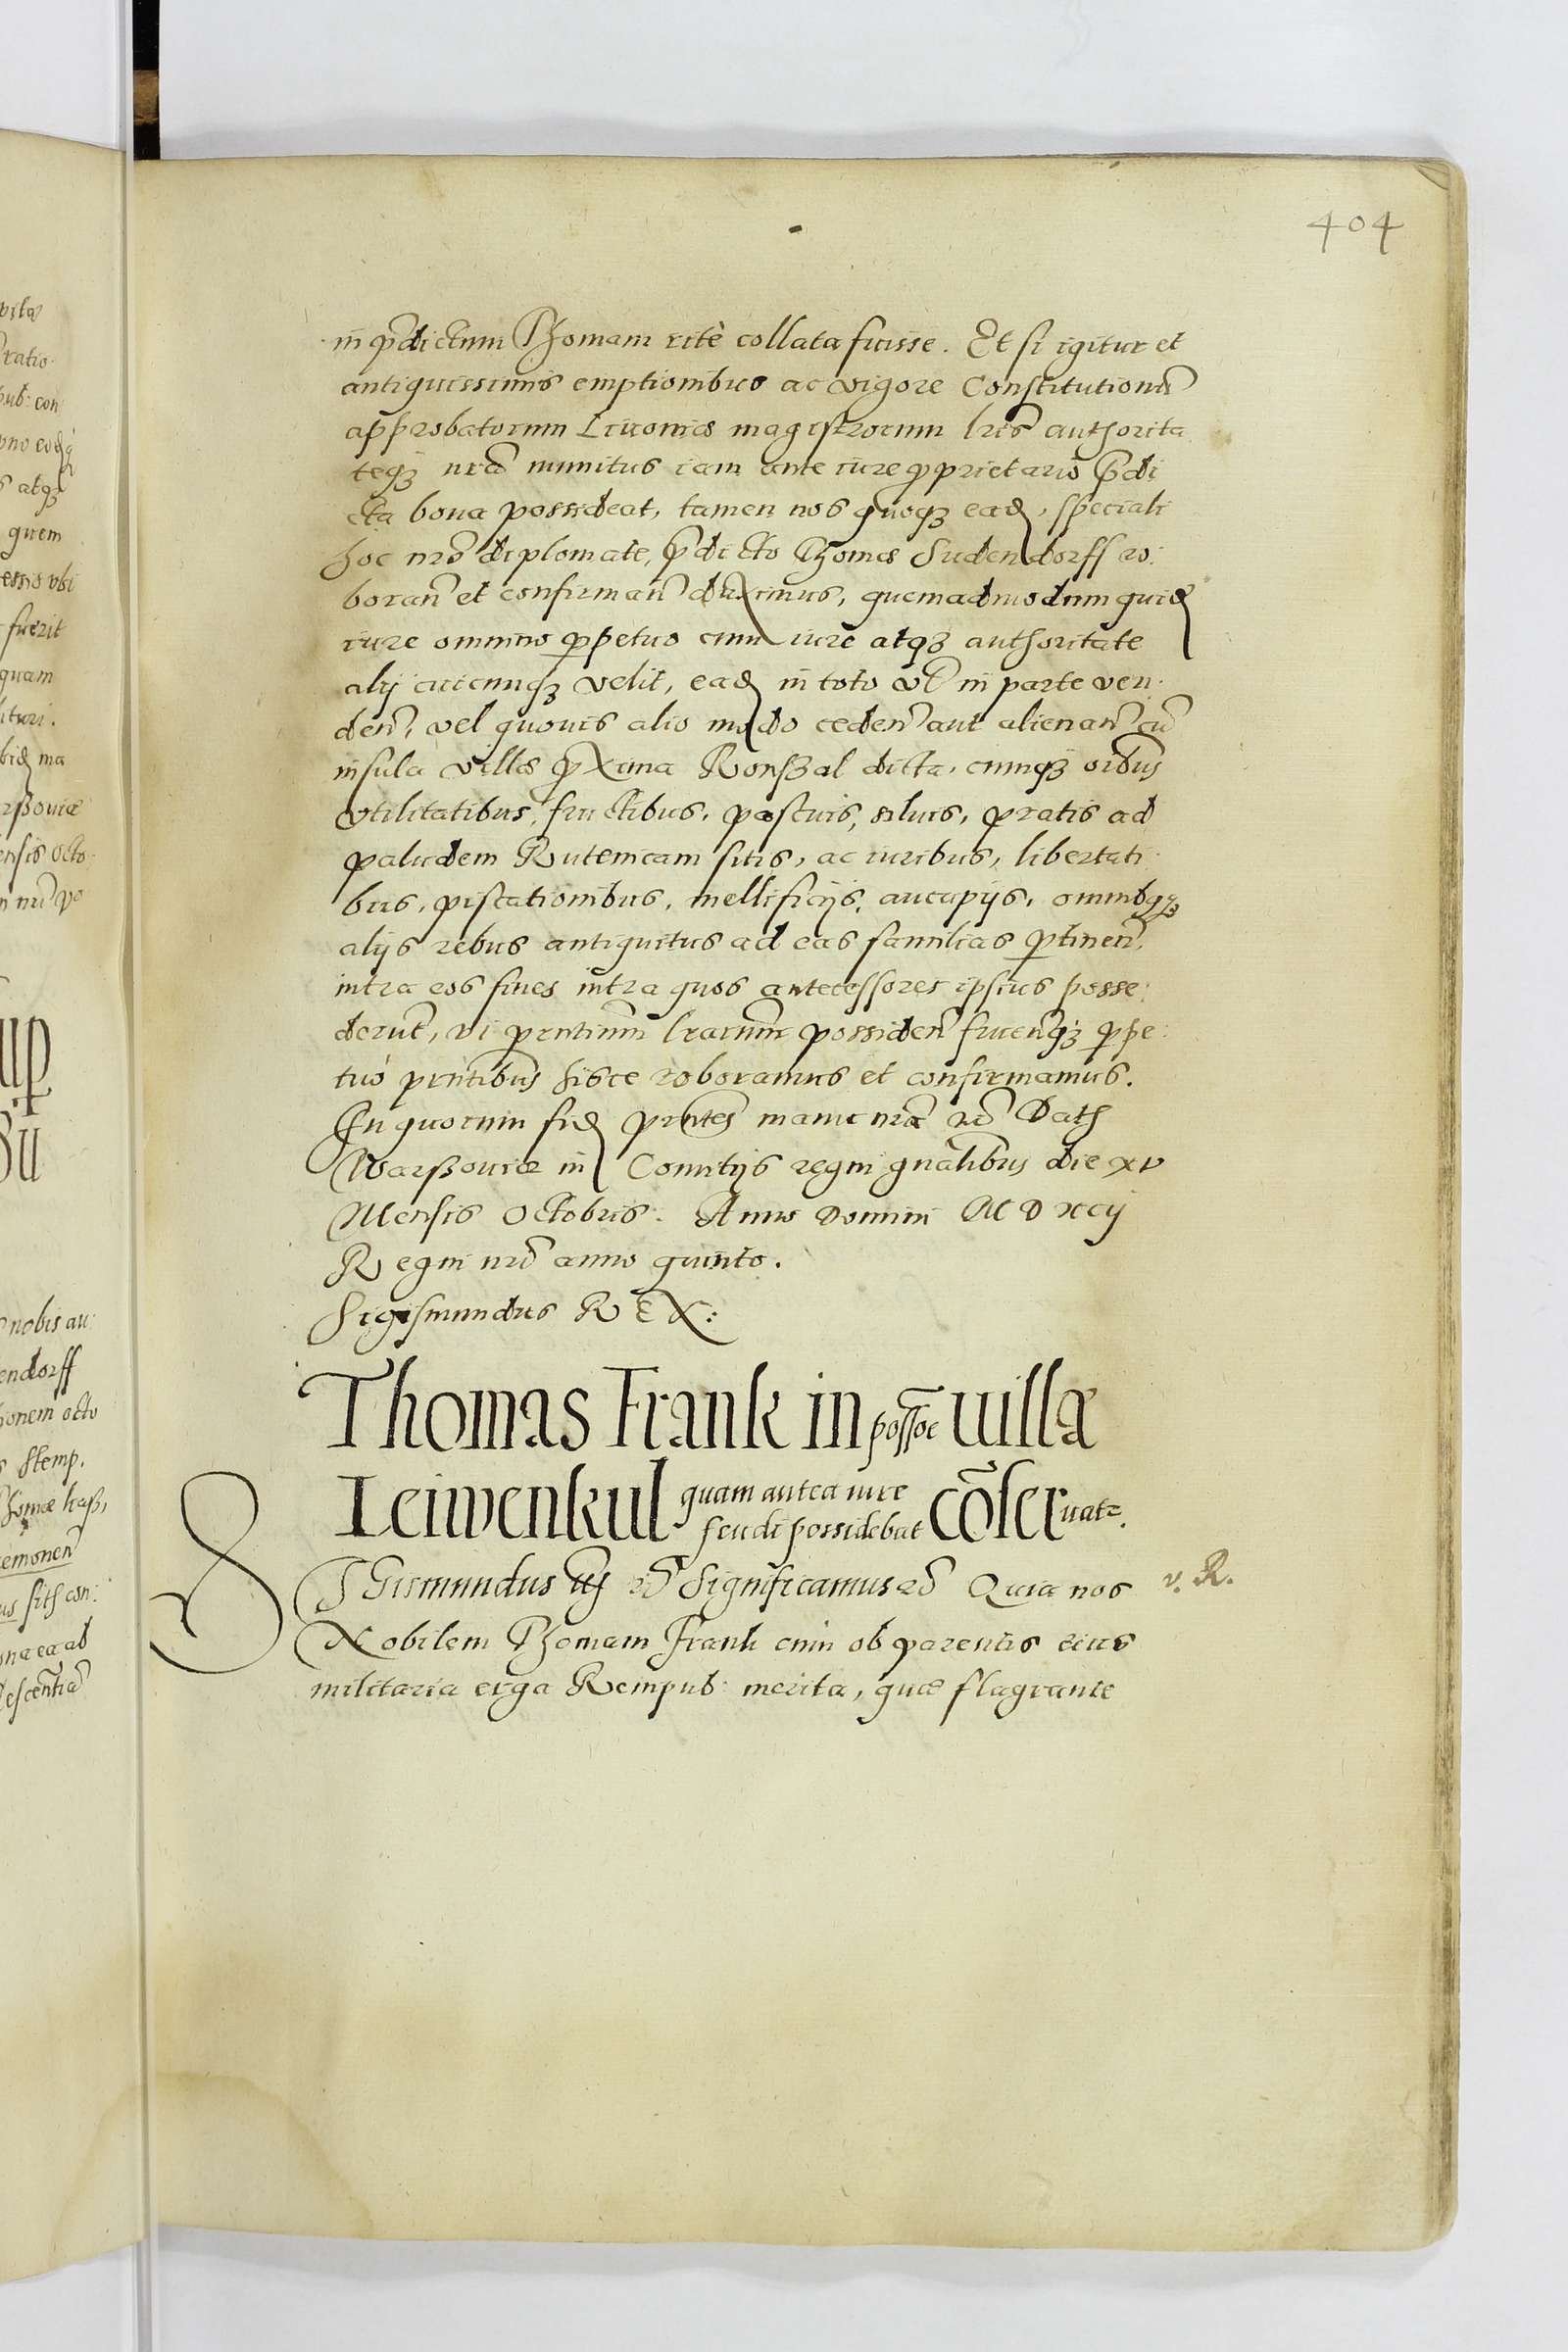 404
in p̃dictum Thomam ritè collata fuisse. Et si igitur et
antiquissimis emptionibus ac vigore Constitutionũ
approbatorum Livoniæ magistrorum lris authorita
teq3 nrã munitus iam ante iure proprietario p̃di
cta bona possideat, tamen nos quoq3 ead, speciali
hoc nrõ diplomate, p̃dicto Thomæ Sudendorff ro:
boran̄ et confirman̄ duximus, quemadmodum quid
iure omnino perpetuo cum iure atq3 authoritate
alij cuicunq3 velit, ead in toto vl̃ in parte ven:
den̄, vel quovis alio modo ceden̄ aut alienan̄ cũ
insula villæ proxima Ronßal dicta, cumq3 oĩbus
vtilitatibus, fructibus, pascuis, siluis, pratis ad
paludem Rutenicam sitis, ac iuribus, libertati
bus, piscationibus, mellificijs, aucupijs, omnibq3
alijs rebus antiquitus ad eas familias ptinen̄,
intra eos fines intra quos antecessores ipsius posse:
derut̃, vi pr̃ntium lrarum possiden̄ fruenq3 perpe:
tuò pr̃ntibus hisce roboramus et confirmamus.
In quorum fid pr̃ntes manu nrã &c̃ Dat
Warßouiæ in Comitijs regni gnãlibus die xv
Mensis Octobris: Anno Domini MDXCij
Regni nrĩ anno quinto.
Sigismundus REX:
Thomas Frank in possoe villæ
Leiwenkul quam antea iure
feudi possidebat cõseruatr.
SIGismundus &c̃ Significamus &c̃ Quia nos
v. R.
Nobilem Thomam Frank cum ob parentis eius
militaria erga Rempub: merita, quæ flagrante